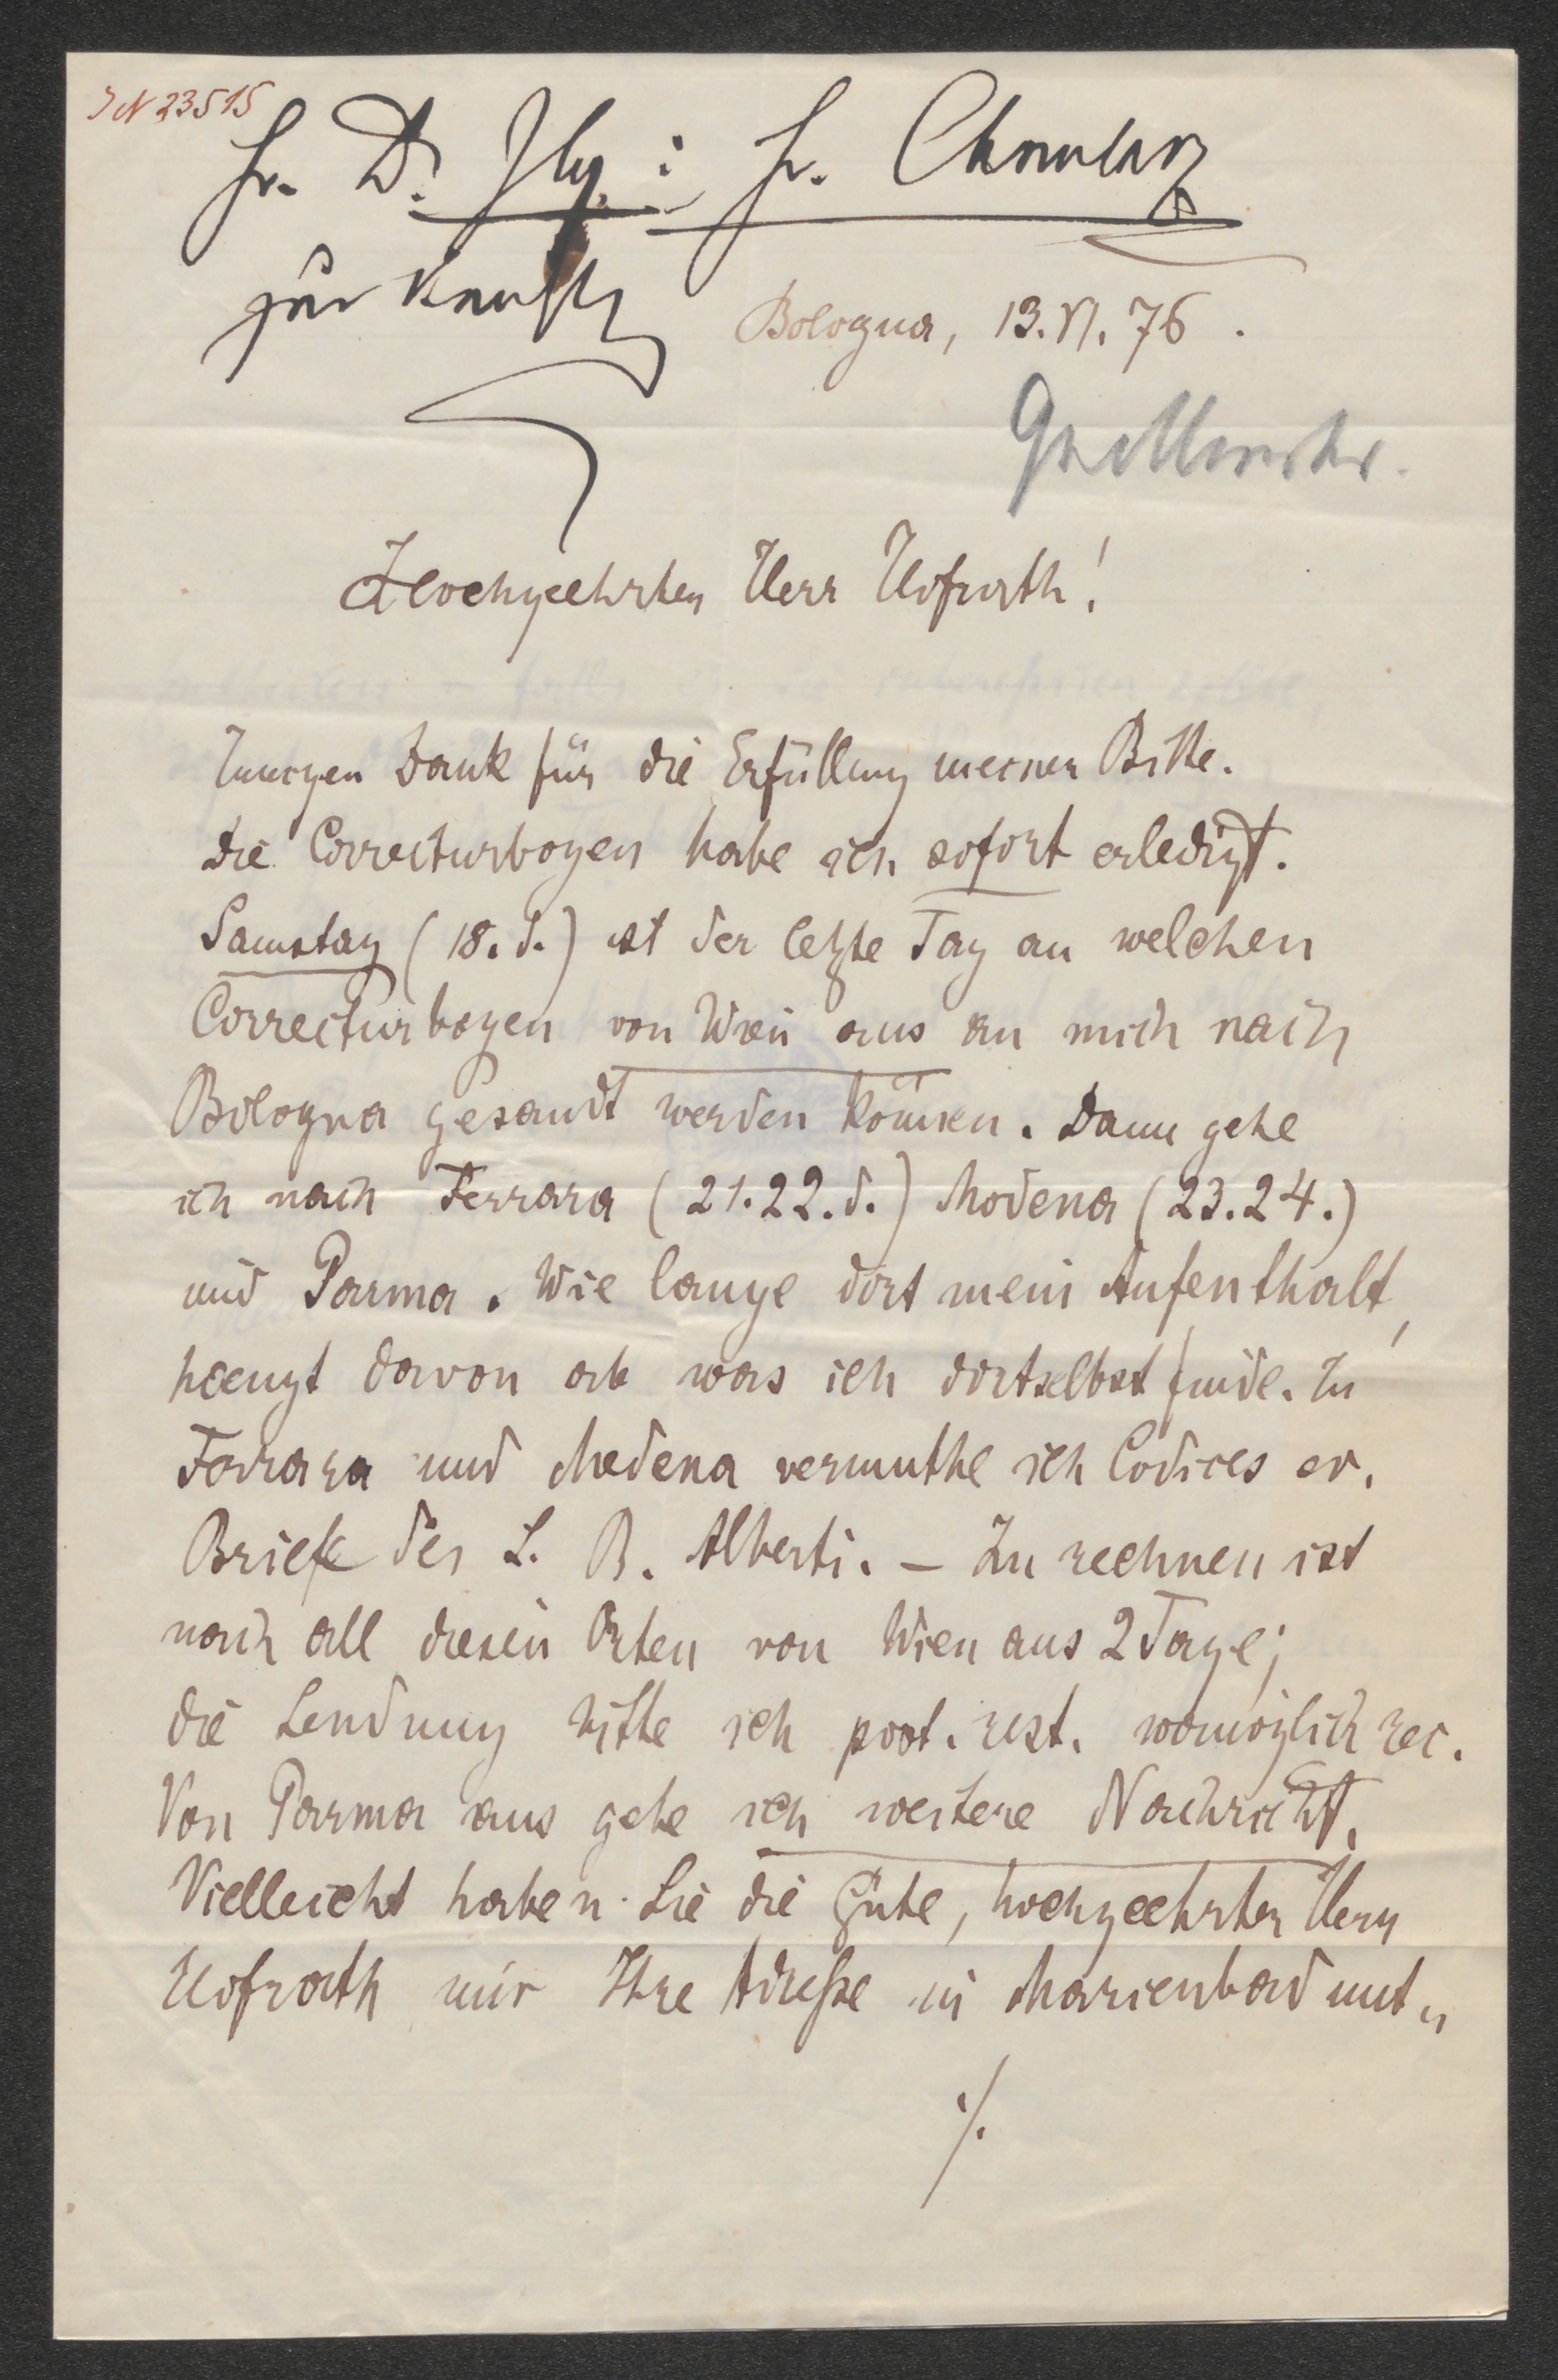 IN 23515
Hr. Dr. Ilg : Hr. Chmelarz
zur
Bologna, 13. VI. 76.
Quellenschr.
Hochgeehrter Herr Hofrath!
Innigen Dank für die Erfüllung meiner Bitte.
Die Correcturbogen habe ich sofort erledigt.
Samstag (18. d.) ist der letzte Tag an welchen
Correcturbogen von Wien aus an mich nach
Bologna gesandt werden können. Dann gehe
ich nach Ferrara (21. 22. d.) Modena (23. 24.)
und Parma. Wie lange dort mein Aufenthalt,
haengt davon ab was ich dortselbst finde. In
Ferrara und Modena vermuthe ich Codices ev.
Briefe des L. B. Alberti. – Zu rechnen ist
nach all diesen Orten von Wien aus 2 Tage;
die Sendung bitte ich post. rest. womöglich rec.
Von Parma aus gebe ich weitere Nachricht.
Vielleicht haben Sie die Güte, hochgeehrter Herr
Hofrath mir Ihre Adreße in Marienbad mit„
./.